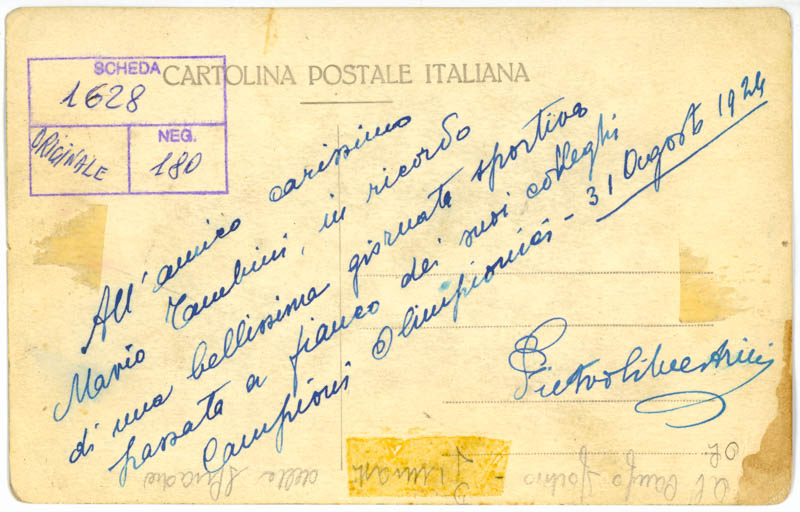 SCHEDA
1628
ORIGINALE
NEG.
180
CARTOLINA POSTALE ITALIANA
All'amico carissimo
Mario Tambini, in ricordo
di una bellissima giornata sportiva
passata a fianco dei suoi colleghi
Campioni Olimpionici - 31 Augosto 1924
Pietro Silvestrini
al Campo
della